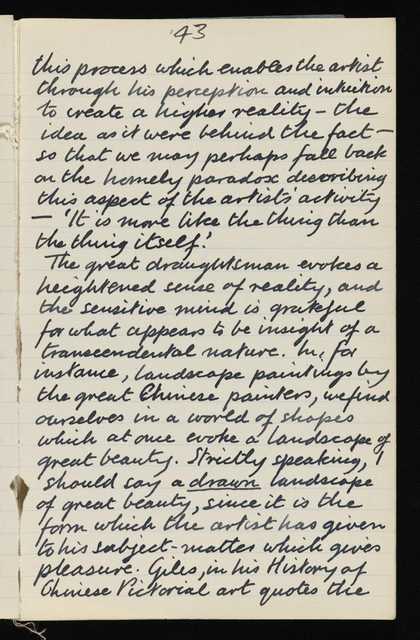 43
this process which enables the artist
through his perception and intuition
to create a higher reality – the
idea as it were behind the fact –
so that we may perhaps fall back
on the homely paradox describing
this aspect of the artists' activity
– 'It is more like the thing than
the thing itself.'
The great draughtsman evokes a
heightened sense of reality, and
the sensitive mind is grateful
for what appears to be insight of a
transcendental nature. In, for
instance, landscape paintings by
the great Chinese painters, we find
ourselves in a world of shapes
which at once evoke a landscape of
great beauty. Strictly speaking, I
should say a drawn landscape
of great beauty, since it is the
form which the artist has given
to his subject-matter which gives
pleasure. Giles, in his History of
Chinese Pictorial art quotes the